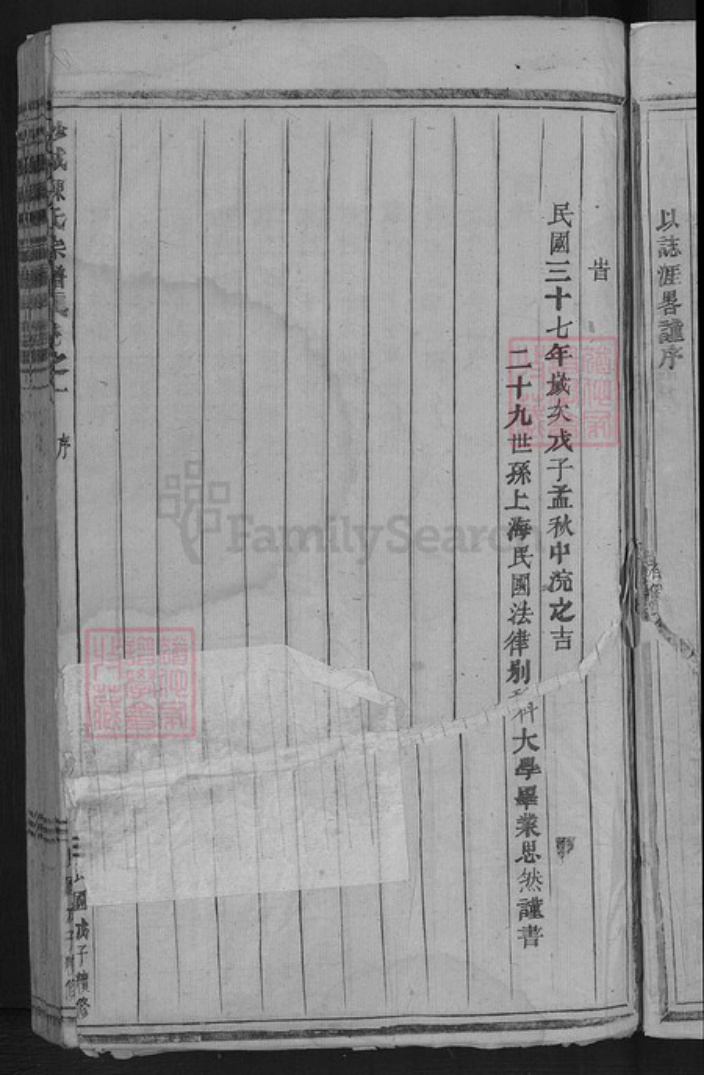 以誌涯畧謹序
旹
民國三十七年歲次戊子孟秋中浣之吉
二十九世孫上海民國法律別科大學畢業思然謹書
陳氏宗譜
序
國戊子續修
FamilySearch